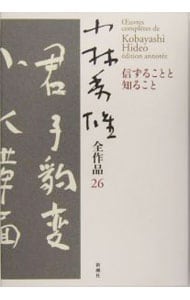 Œuvres
complètes de
Kobayashi
Hideo
édition annotée
信ずることと
知ること
小林秀雄
全作品
26
君子豹変
小人革面
新潮社